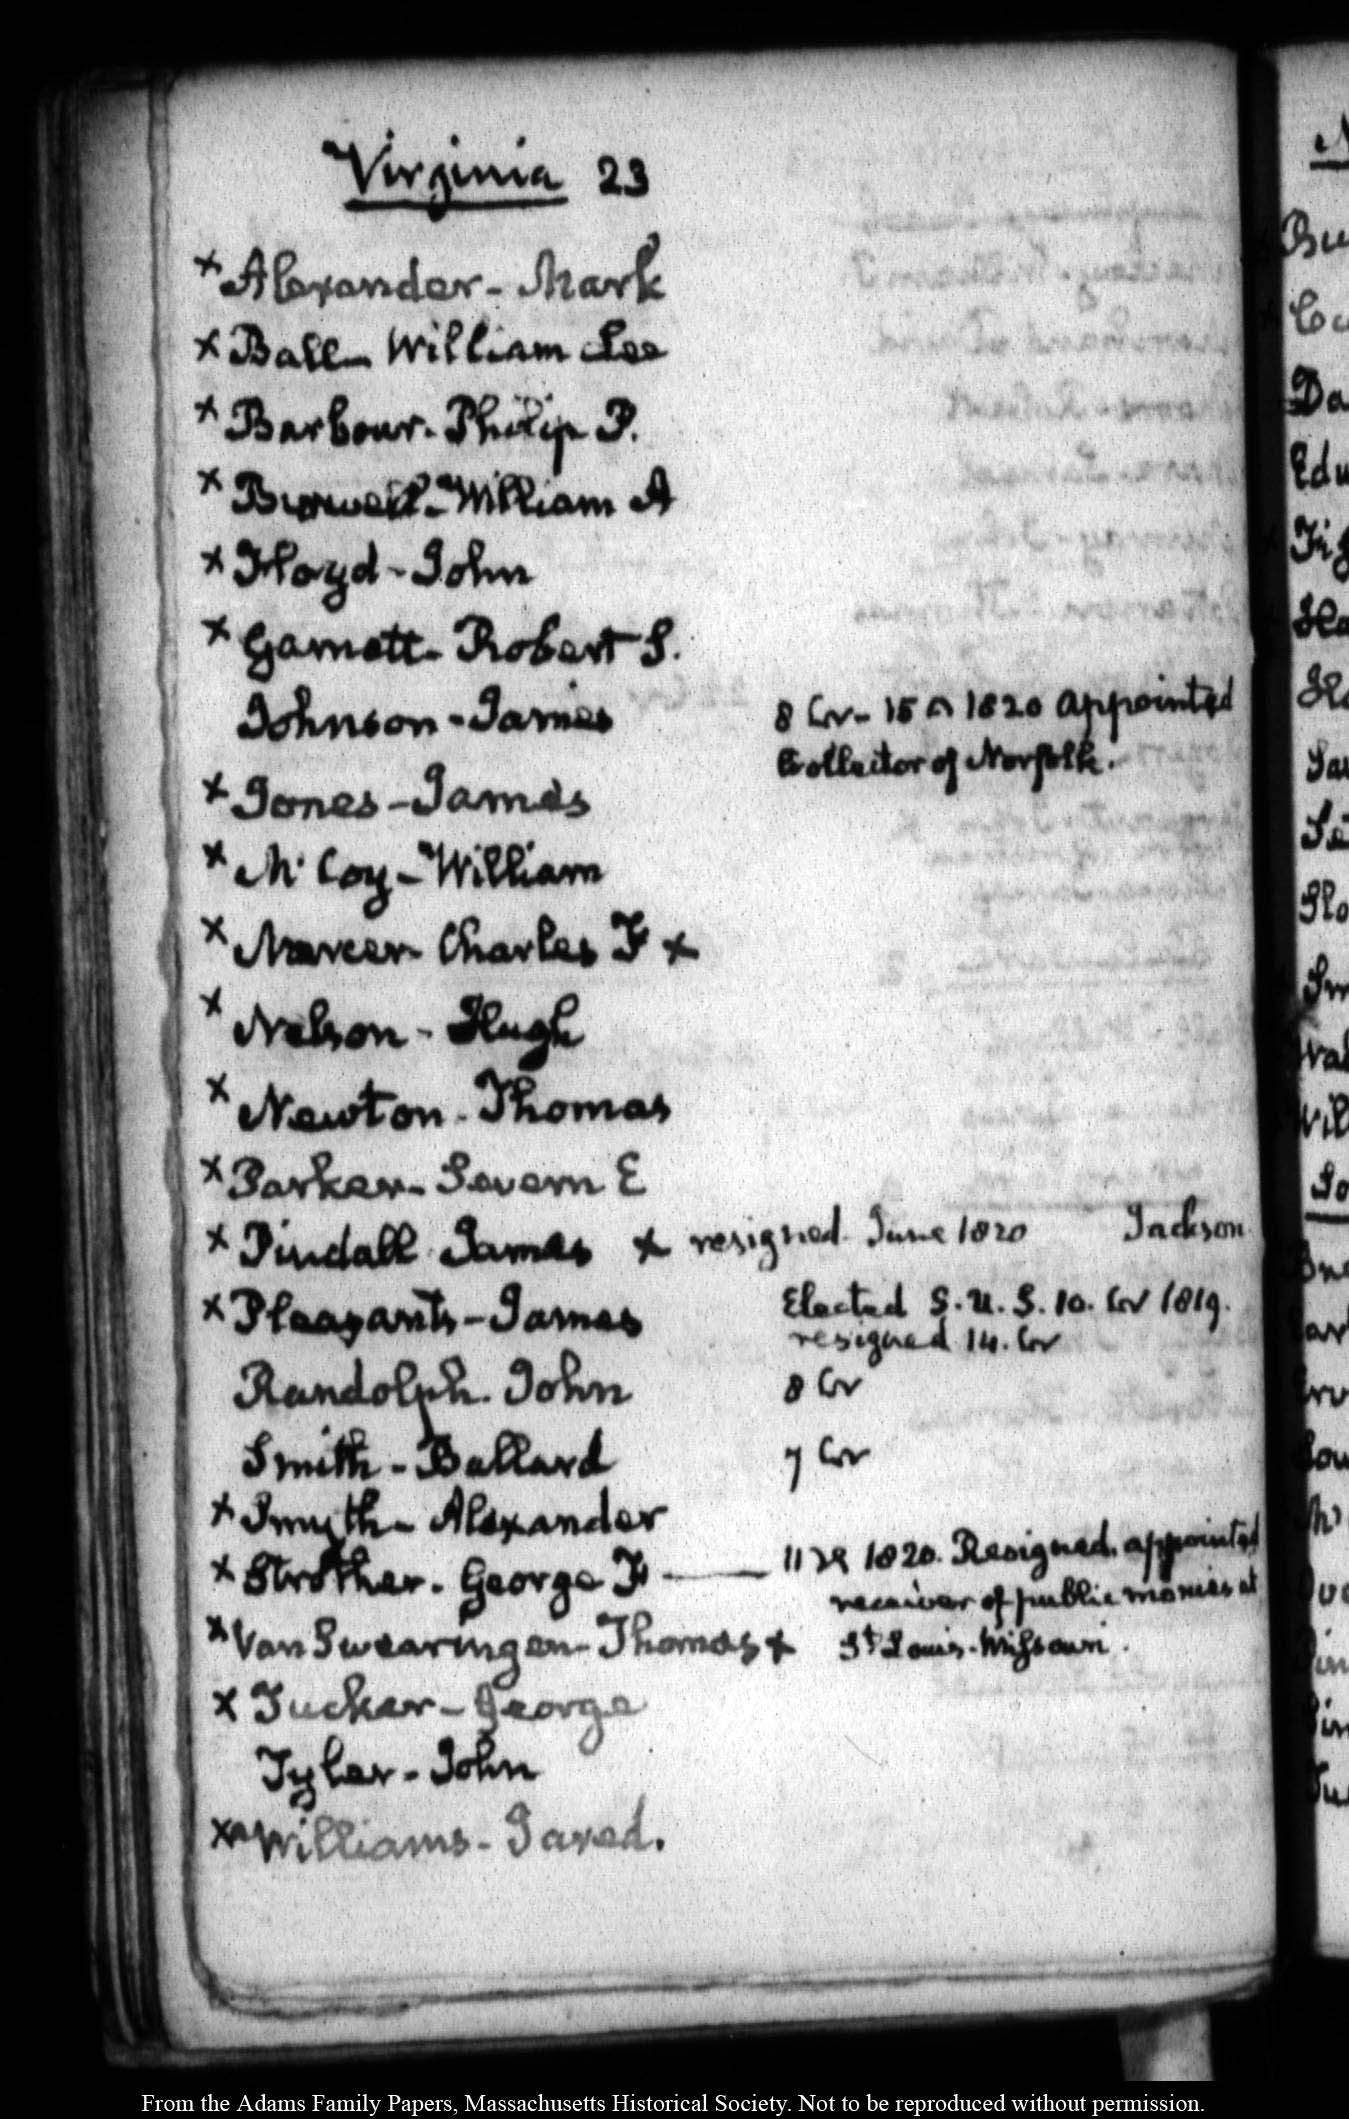 Virginia 23
× Alexander - Mark
× Ball - William Lee
× Barbour - Philip P.
× Burwell - William A
× Floyd - John
× Garnett - Robert S.
Johnson - James 8 Cr - 15 1820 Appointed
Collector of Norfolk.
× Jones - James
× Mc Coy - William
× Mercer - Charles F ×
× Nelson - Hugh
× Newton - Thomas
× Parker - Severn E
× Pindall James × resigned June 1820 Jackson
× Pleasants - James Elected S. U. S. 10. Cr 1819.
resigned 14. Cr
Randolph - John 8 Cr
Smith - Ballard 7 Cr
× Smyth - Alexander
× Strother - George F — 11 1820. Resigned, appointed
receiver of public monies at
× Van Swearingen - Thomas × St Louis - Missouri.
× Tucker - George
Tyler - John
× Williams - Jared.
Bu
Co
Da
Edw
Fis
Sm
Wal
Will
So
From the Adams Family Papers, Massachusetts Historical Society. Not to be reproduced without permission.